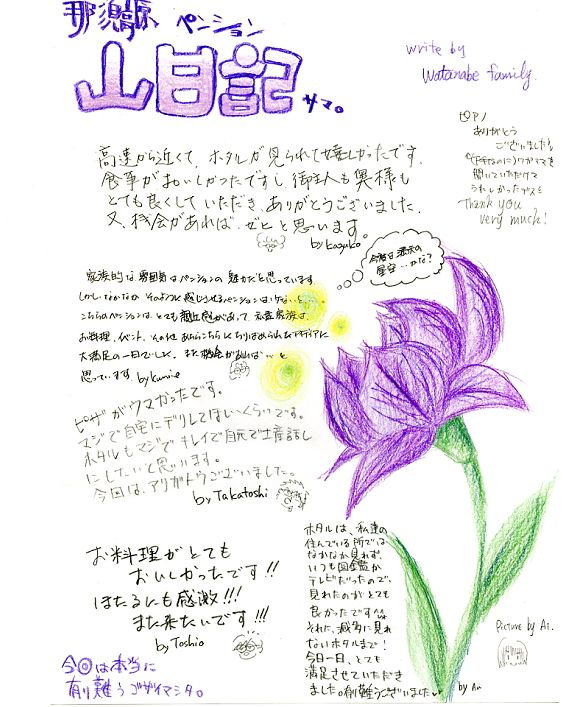 那須高原 ペンション
山日記
サマ。
write by
Watanabe family.
ピアノ
ありがとう
ございました!
聞いていただけて
うれしかったデス
Thank you
very much!
高速から近くて、ホタルが見られて嬉しかったです。
食事がおいしかったですし御主人も奥様も
とても良くしていただき、ありがとうございました。
又、機会があれば、ぜひと思います。
by Kazuko
今宵は満天の
星空…かな?
家族的な雰囲気はペンションの魅力だと思っています
しかしなかなか そのように感じさせるペンションは少ない…
こちらのペンションは、とても
お料理、イベント、その他
大満足の一日でした。また機会があれば…と
思っています。by Kumie
ピザがウマかったです。
マジで自宅にデリしてほしいくらいです。
ホタルもマジでキレイで自元で土産話し
にしたいと思います。
今回は、アリガトウございました。
by Takatoshi
お料理がとても
おいしかったです!!
ほたるにも感激!!!
また来たいです!!!
by Toshio
ホタルは、私達の
住んでいる所では
なかなか見れず、
いつも図鑑か
テレビだったので、
見れたのがとても
良かったです
それに、滅多に見れ
ないホタルまで!
今日一日、とても
満足させていただき
ました。有難うございました
by Ai
Picture by Ai.
今回は本当に
有り難うゴザイマシタ。